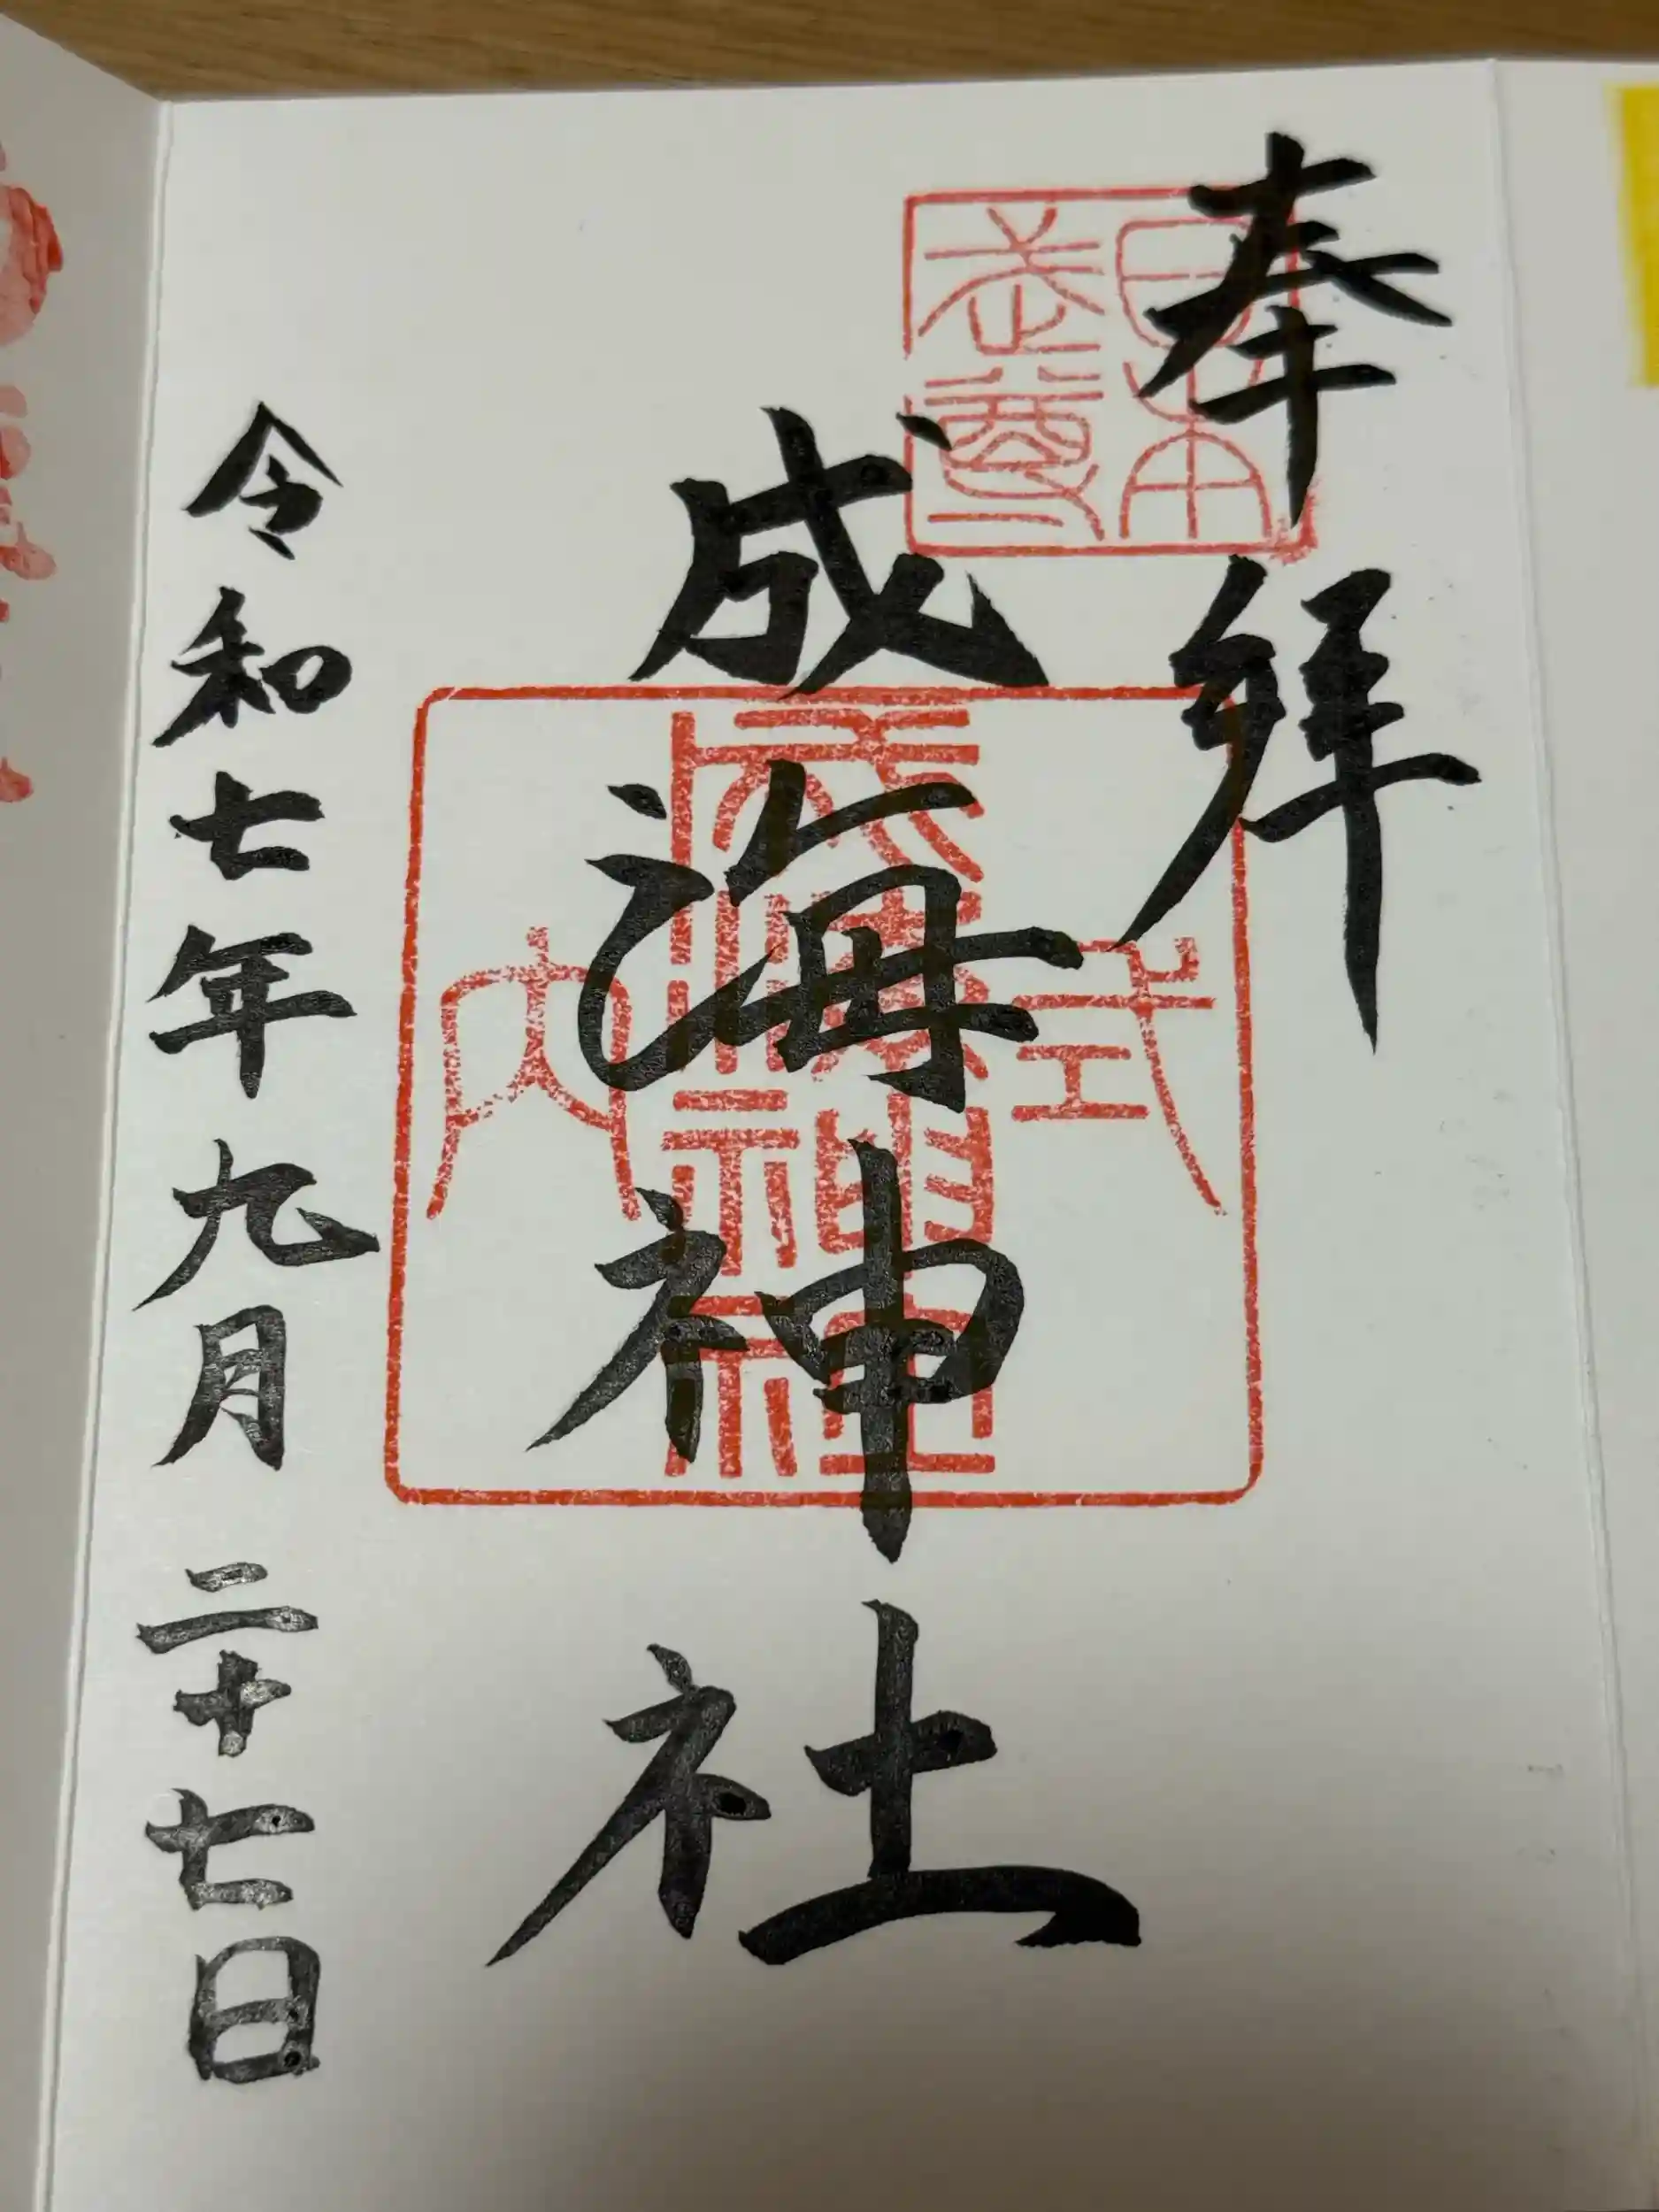 奉拝
日本
武尊
成海神社
式
成海神社
内
令和七年九月二十七日